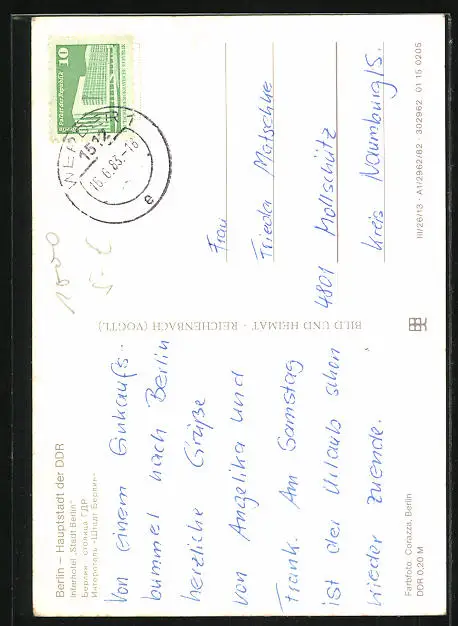 Berlin – Hauptstadt der DDR
Interhotel „Stadt Berlin"
Берлин – столица ГДР
Интеротель «Штадт Берлин»
Von einem Einkaufs-
bummel nach Berlin
herzliche Grüße
von Angelika und
Frank. Am Samstag
ist der Urlaub schon
wieder zuende.
Farbfoto: Corazza, Berlin
DDR 0,20 M
BILD UND HEIMAT · REICHENBACH (VOGTL)
10
Palast der Republik
WERDER
1512
16.6.83.-18
e
1000
Frau
Frieda Motschke
4801 Mollschütz
Kreis Naumburg/S.
III/26/13 A1/2962/82 302962 01 15 0205